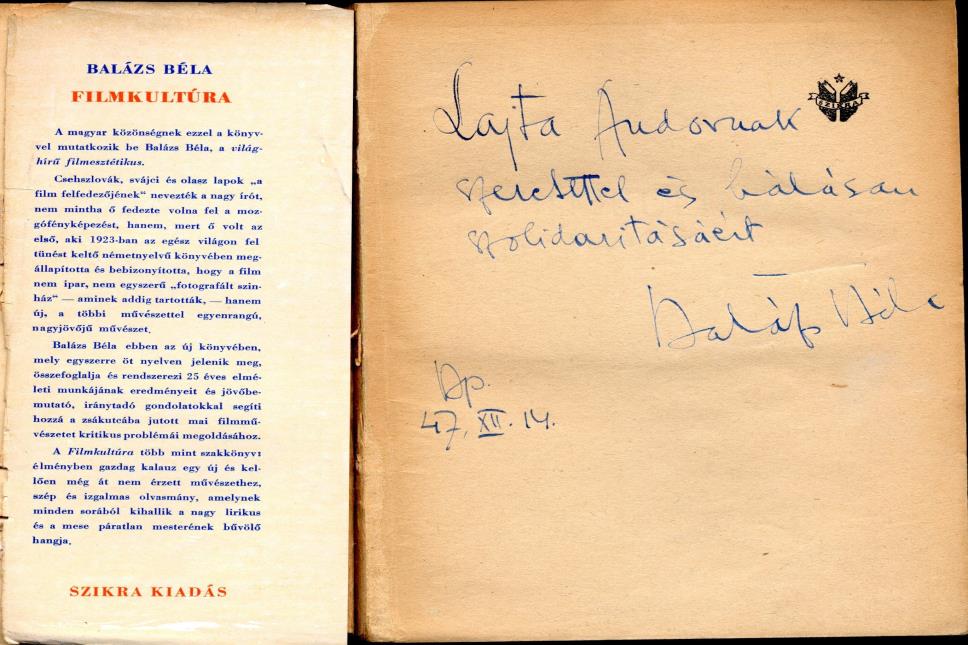 BALÁZS BÉLA
FILMKULTÚRA
A magyar közönségnek ezzel a könyv-
vel mutatkozik be Balázs Béla, a világ-
hírű filmesztétikus.
Csehszlovák, svájci és olasz lapok „a
film felfedezőjének“ nevezték a nagy írót,
nem mintha ő fedezte volna fel a moz-
gófényképezést, hanem, mert ő volt az
első, aki 1923-ban az egész világon fel
tünést keltő németnyelvű könyvében meg-
állapította és bebizonyította, hogy a film
nem ipar, nem egyszerű „fotografált szin-
ház“ — aminek addig tartották, — hanem
új, a többi művészettel egyenrangú,
nagyjövőjű művészet.
Balázs Béla ebben az új könyvében,
mely egyszerre öt nyelven jelenik meg,
összefoglalja és rendszerezi 25 éves elmé-
leti munkájának eredményeit és jövőbe-
mutató, iránytadó gondolatokkal segíti
hozzá a zsákutcába jutott mai filmmű-
vészetet kritikus problémái megoldásához.
A Filmkultúra több mint szakkönyv:
élményben gazdag kalauz egy új és kel-
lően még át nem érzett művészethez,
szép és izgalmas olvasmány, amelynek
minden sorából kihallik a nagy lirikus
és a mese páratlan mesterének bűvölő
hangja.
SZIKRA KIADÁS
SZIKRA
Lajta Andornak
szeretettel és hálásan
szolidaritásáért
Balázs Béla
Bp.
47. XII. 14.